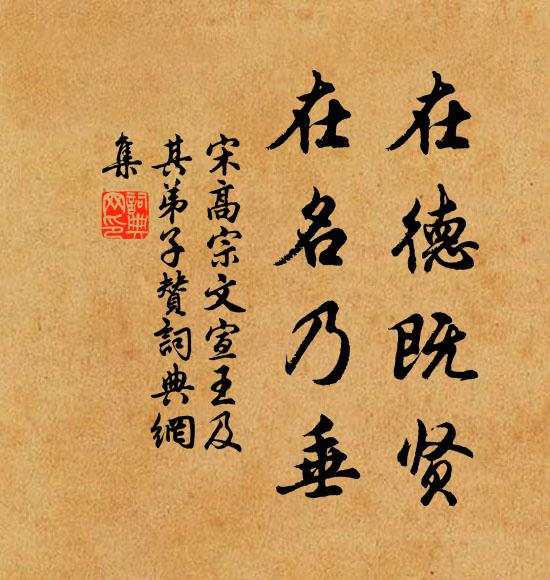 在德既贤
在名乃垂
宋高宗文宣王及
其弟子赞词典網
集
詞典
网印